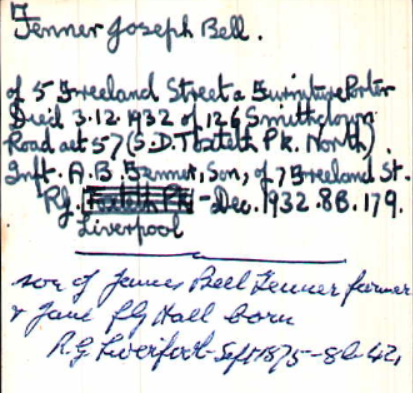 Fenner Joseph Bell.
of 5 Freeland Street a Furniture Porter
Died 3.12.1932 of 126 Smithdown
Road aet 57 (S.D. Toxteth Pk. North).
Inft. A.B. Fenner, Son, of 7 Freeland St.
Rg. Toxteth Pk - Dec. 1932. 8B. 179.
Liverpool
son of James Bell Fenner farmer
& Jane Hall born
R.G Liverpool - Sept 1875 - 8b - 42,